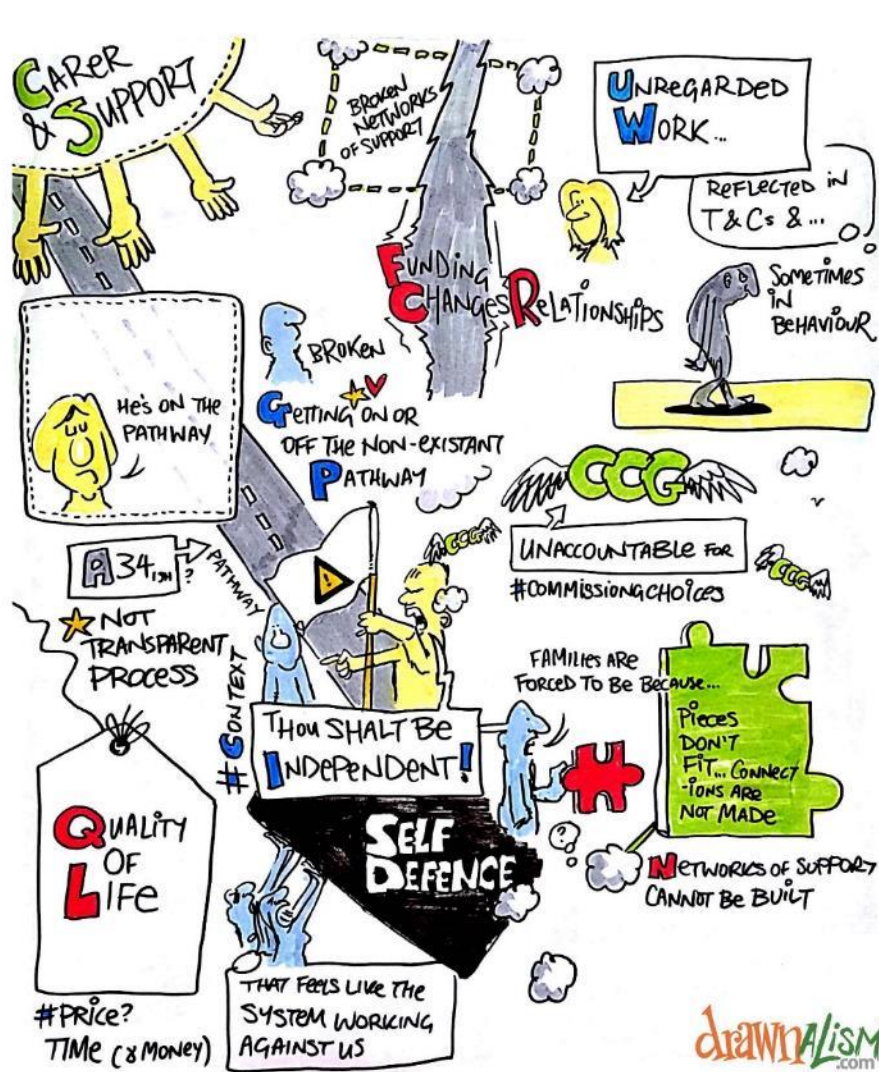 CARER
& SUPPORT
BROKEN
NETWORKS
OF SUPPORT
UNREGARDED
WORK...
REFLECTED IN
T & Cs & ...
SOMETIMES
IN
BEHAVIOUR
FUNDING
CHANGES RELATIONSHIPS
BROKEN
HE'S ON THE
PATHWAY
GETTING ON OR
OFF THE NON-EXISTANT
PATHWAY
CCG
CCG
CCG
UNACCOUNTABLE FOR
#COMMISSIONGCHOICES
A34,
?
PATHWAY
NOT
TRANSPARENT
PROCESS
#CONTEXT
THOU SHALT BE
INDEPENDENT!
FAMILIES ARE
FORCED TO BE BECAUSE...
PIECES
DON'T
FIT... CONNECT
-IONS ARE
NOT MADE
NETWORKS OF SUPPORT
CANNOT BE BUILT
SELF
DEFENCE
?
QUALITY
OF
LIFE
#PRICE?
TIME (& MONEY)
THAT FEELS LIKE THE
SYSTEM WORKING
AGAINST US
drawnalism
.com